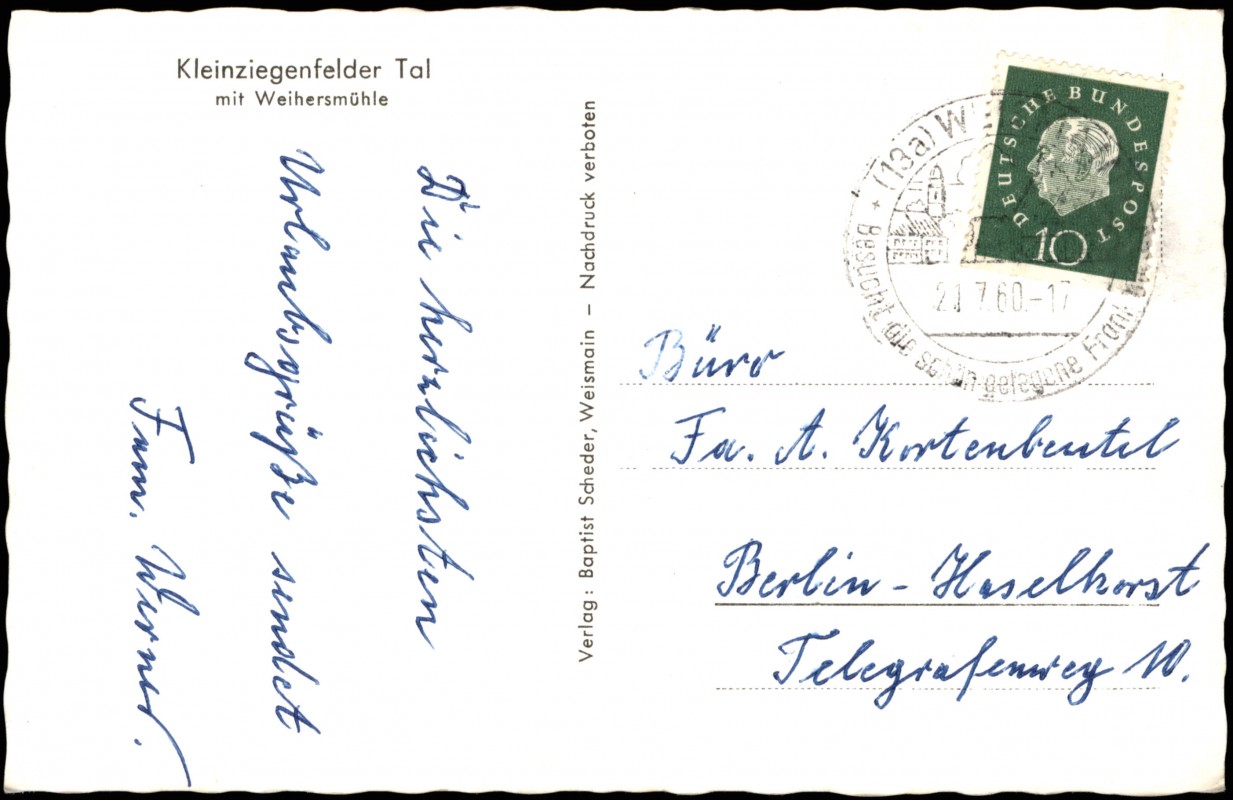 Kleinziegenfelder Tal
mit Weihersmühle
Die herzlichsten
Urlaubsgrüße sendet
Fam. Werner.
Verlag: Baptist Scheder, Weismain – Nachdruck verboten
DEUTSCHE BUNDESPOST
10
(13a)
7.60.-17
Besucht die schön gelegene
Büro
Fa. A. Kortenbeutel
Berlin - Haselhorst
Telegrafenweg 10.